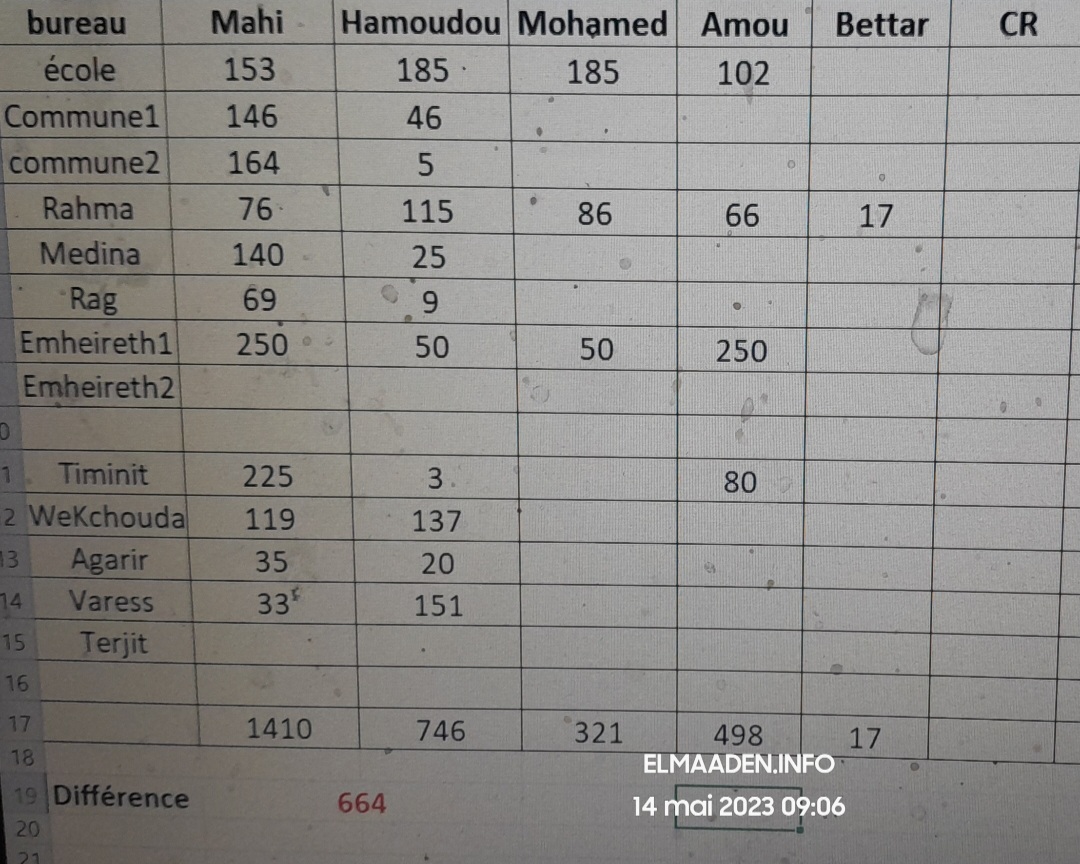 bureau Mahi Hamoudou Mohamed Amou Bettar CR
école 153 185 185 102
Commune1 146 46
commune2 164 5
Rahma 76 115 86 66 17
Medina 140 25
Rag 69 9
Emheireth1 250 50 50 250
Emheireth2
0
1 Timinit 225 3 80
2 WeKchouda 119 137
13 Agarir 35 20
14 Varess 33 151
15 Terjit
16
17 1410 746 321 498 17
18
ELMAADEN.INFO
19 Différence 664
14 mai 2023 09:06
20
21